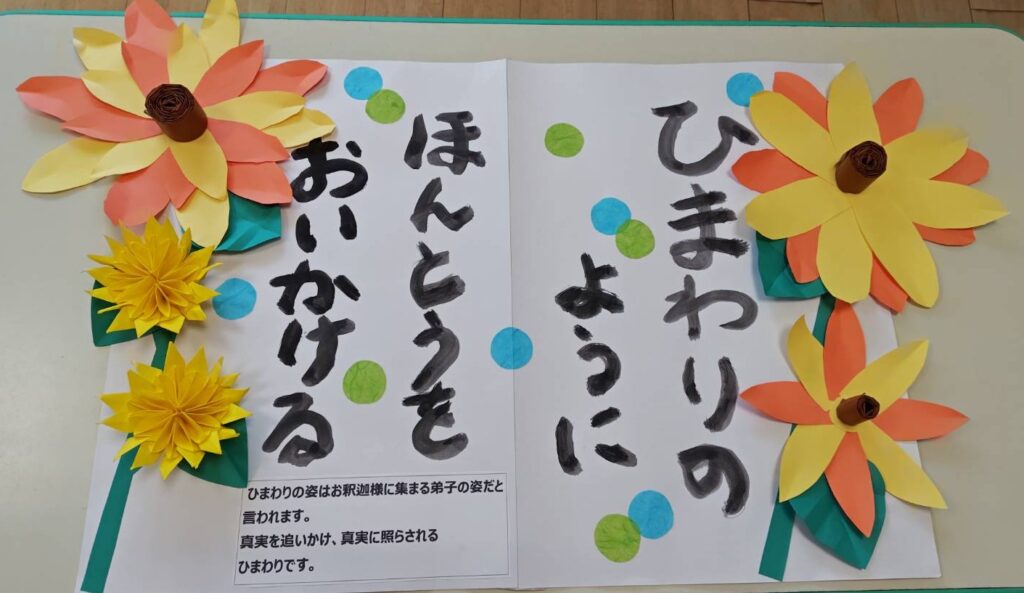 ひまわりの
ように
ほんとうを
おいかける
ひまわりの姿はお釈迦様に集まる弟子の姿だと
言われます。
真実を追いかけ、真実に照らされる
ひまわりです。